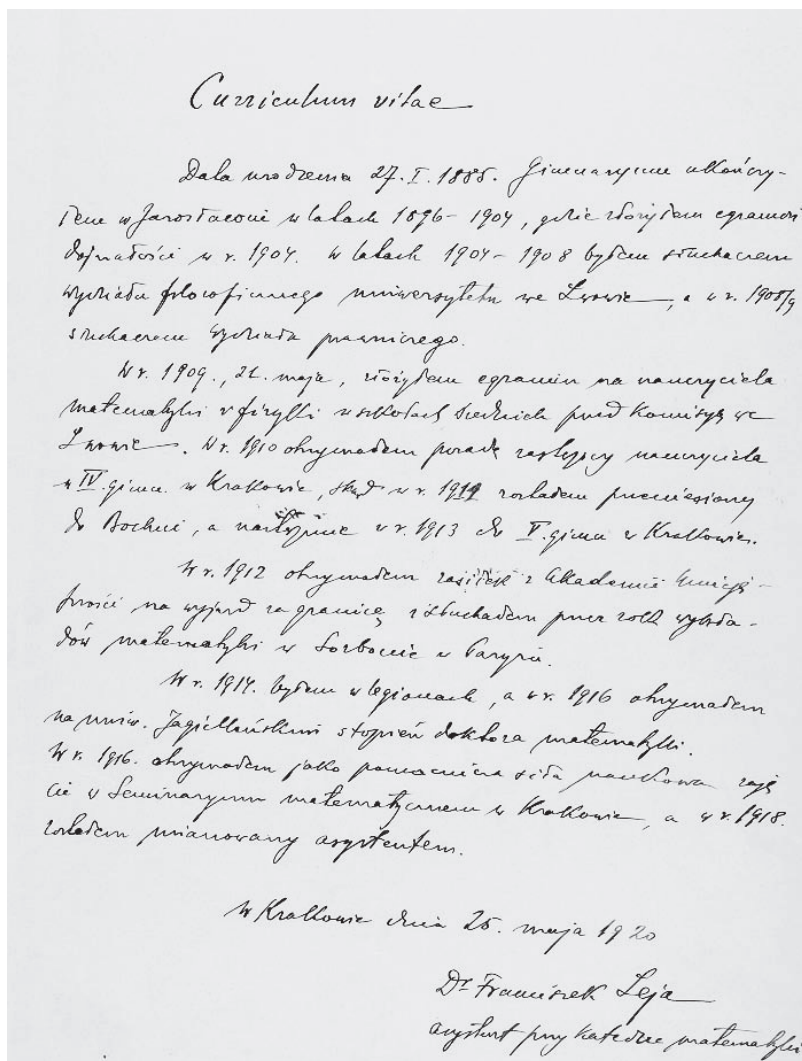 Curriculum vitae
Data urodzenia 27. I. 1885. Gimnazyum ukończy-
łem w Jarosławiu w latach 1896 - 1904, gdzie złożyłem egzamin
dojrzałości w r. 1904. W latach 1904 - 1908 byłem słuchaczem
wydziału filozoficznego uniwersytetu we Lwowie, a w r. 1908/9
słuchaczem wydziału prawniczego.
W r. 1909., 21. maja, złożyłem egzamin na nauczyciela
matematyki i fizyki w szkołach średnich przed Komisyą we
Lwowie. W r. 1910 otrzymałem posadę zastępcy nauczyciela
w IV. gimn. w Krakowie, skąd w r. zostałem przeniesiony
do Bochni, a następnie w r. 1913 do V. gimn w Krakowie.
W r. 1912 otrzymałem zasiłek z Akademii Umieję-
tności na wyjazd za granicę i słuchałem przez rok wykła-
dów matematyki w Sorbonie w Paryżu.
W r. 1914. byłem w legionach, a w r. 1916 otrzymałem
na uniw. Jagiellońskim stopień doktora matematyki.
W r. 1916. otrzymałem jako pomocnicza siła naukowa zaję
cie w Seminaryum matematycznem w Krakowie, a w r. 1918.
zostałem mianowany asystentem.
W Krakowie dnia 25. maja 1920
Dr Franciszek Leja
asystent przy katedrze matematyki